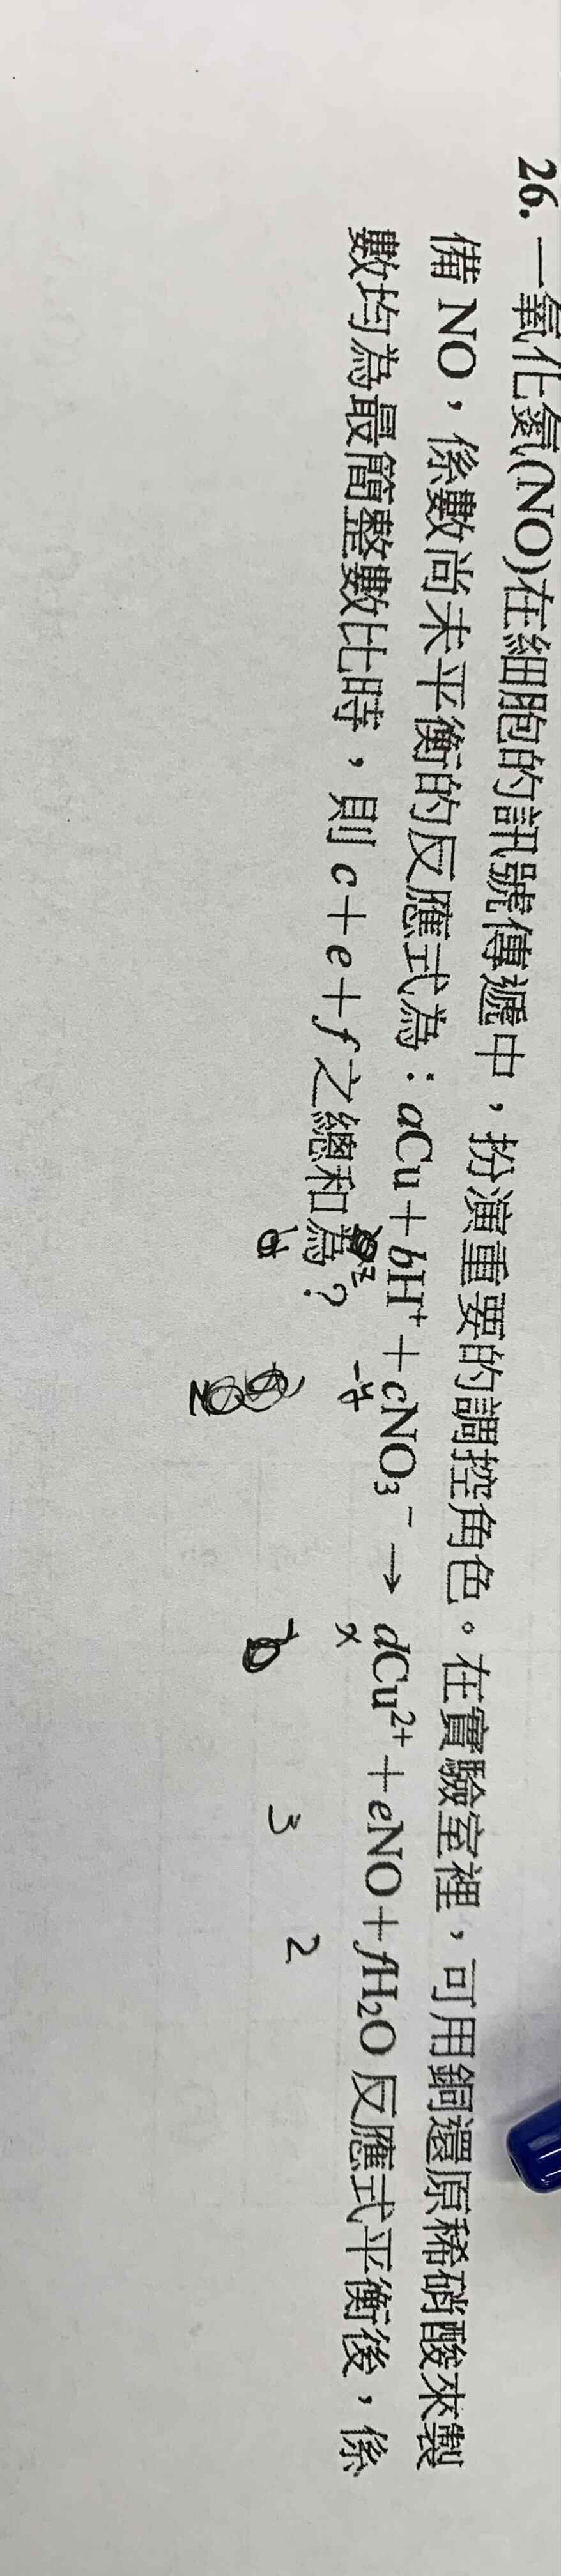 26. 一氧化氮(NO)在細胞的訊號傳遞中，扮演重要的調控角色。在實驗室裡，可用銅還原稀硝酸來製
備 NO，係數尚未平衡的反應式為：aCu＋bH⁺＋cNO₃⁻→dCu²⁺＋eNO＋fH₂O 反應式平衡後，係
數均為最簡整數比時，則 c＋e＋f 之總和為？
3 2